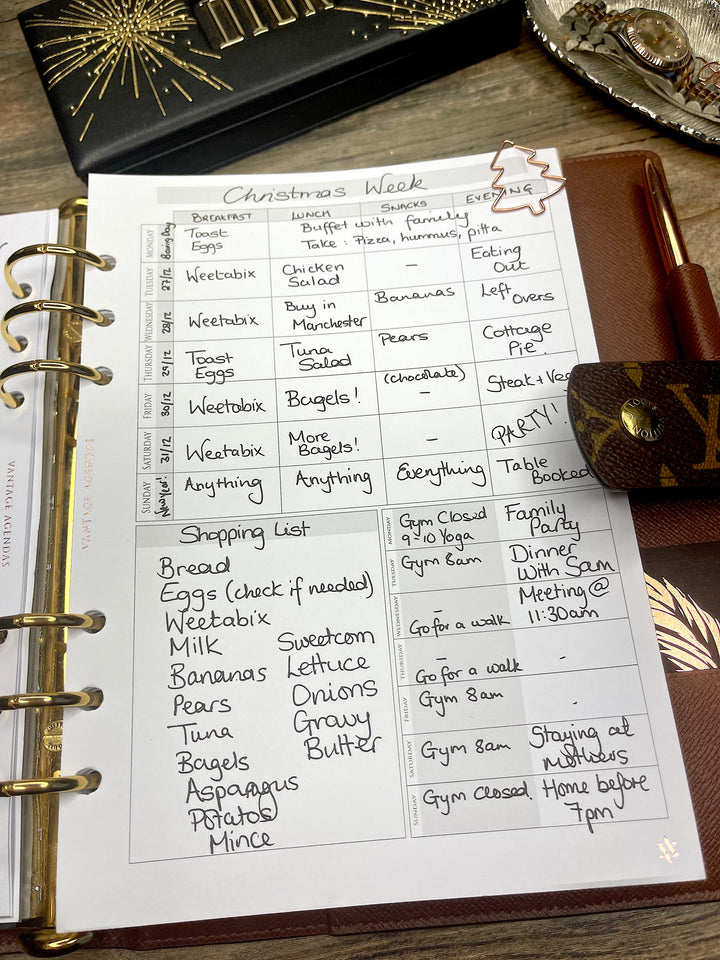 Christmas Week
BREAKFAST LUNCH SNACKS EVENING
MONDAY Boxing Day Toast Eggs Buffet with family
Take : Pizza, hummus, pitta
TUESDAY 27/12 Weetabix Chicken Salad – Eating Out
WEDNESDAY 28/12 Weetabix Buy in Manchester Bananas Left overs
THURSDAY 29/12 Toast Eggs Tuna Salad Pears Cottage Pie
FRIDAY 30/12 Weetabix Bagels! (chocolate) – Steak + Veg
SATURDAY 31/12 Weetabix More Bagels! – PARTY!
SUNDAY New Year! Anything Anything Everything Table Booked
Shopping List
Bread
Eggs (check if needed)
Weetabix
Milk Sweetcorn
Bananas Lettuce
Pears Onions
Tuna Gravy
Bagels Butter
Asparagus
Potatos
Mince
MONDAY Gym Closed 9-10 Yoga Family Party
TUESDAY Gym 8am Dinner With Sam
WEDNESDAY – Go for a walk Meeting @ 11:30am
THURSDAY – Go for a walk -
FRIDAY Gym 8am -
SATURDAY Gym 8am Staying at Mothers
SUNDAY Gym Closed. Home before 7pm
VANTAGE AGENDAS
VANTAGE AGENDAS